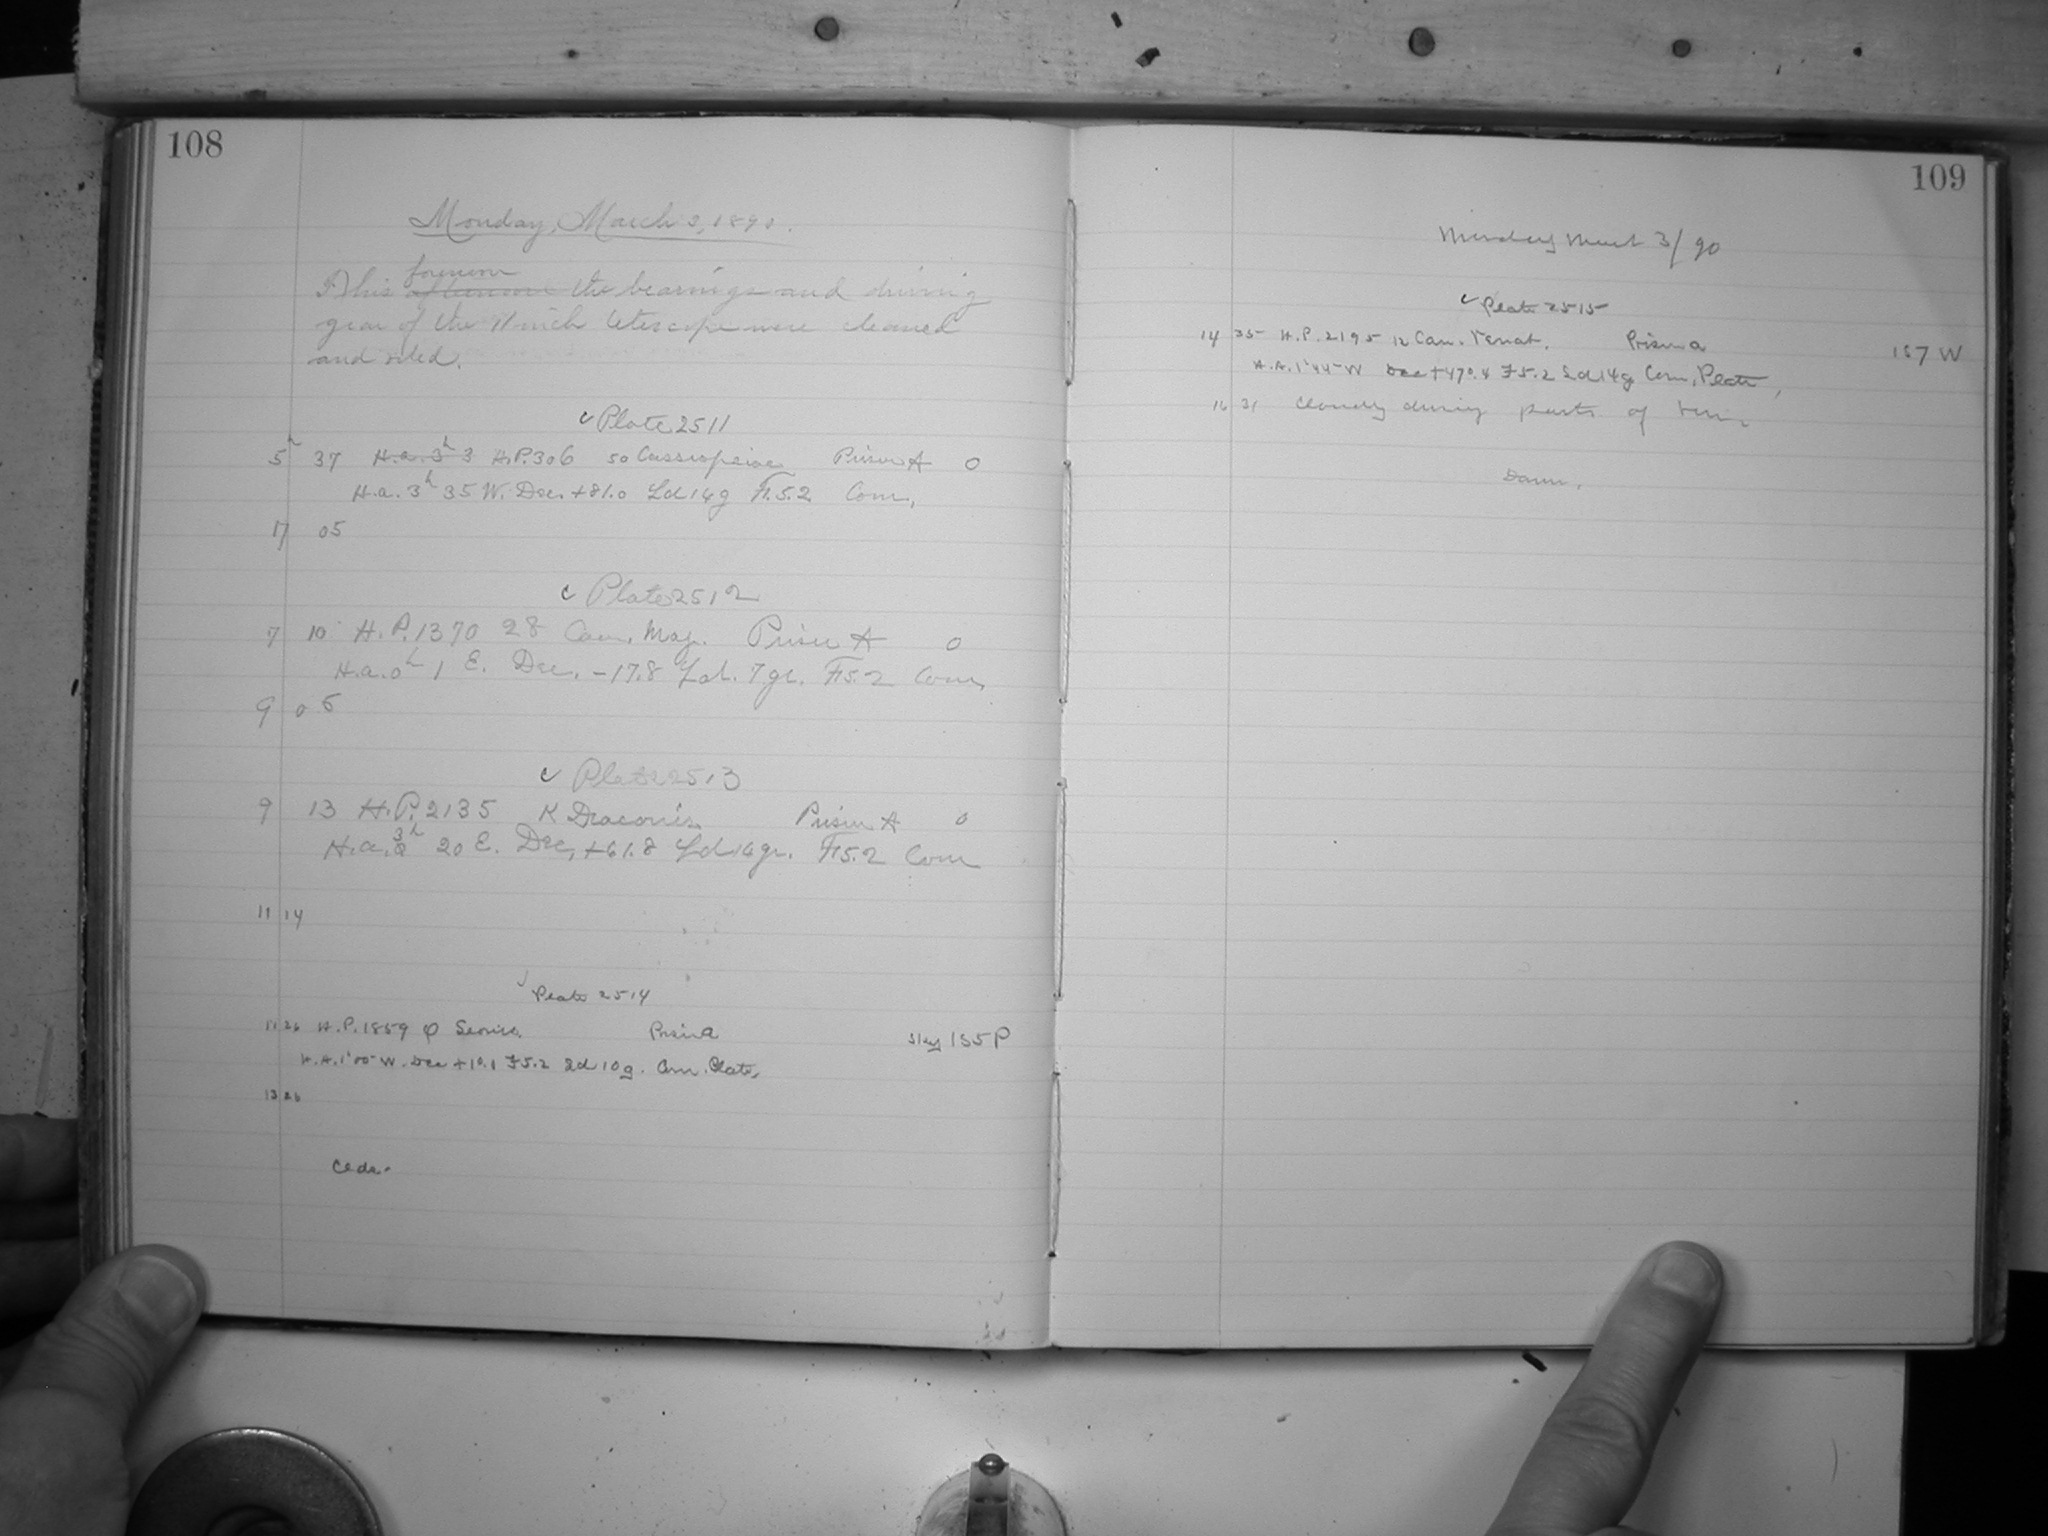 108
Monday, March 3, 1890.
forenoon
This afternoon the bearings and driving
gear of the 11 inch telescope were cleaned
and oiled.
Plate 2511
5h 37 H.a. 3h 3 H.P. 306 50 Cassiopeiae Prism A 0
H.a. 3h 35 W. Dec. +81.0 Ld 14g F5.2 Com.
17 05
Plate 2512
7 10 H.P. 1370 28 Can. Maj. Prism A 0
H.a. 0h 1 E. Dec. -17.8 Ld. 7gr. F5.2 Com.
9 05
Plate 2513
9 13 H.P. 2135 K Draconis Prism A 0
H.a. 3h 20 E. Dec. +61.8 Ld 14gr. F5.2 Com
11 14
Plate 2514
11 26 H.P. 1859 φ Prism a Sky 155 P
H.A. 1h 00 W. Dec +10.1 F5.2 Ld 10g. Com. Plate.
13 26
109
Monday March 3/90
Plate 2515
14 35 H.P. 2195 12 Can. Venat. Prism a 157 W
H.A. 1h 44 W Dec +47°.4 F5.2 Ld 14g Com. Plate.
16 31 Cloudy during parts of
Dawn.